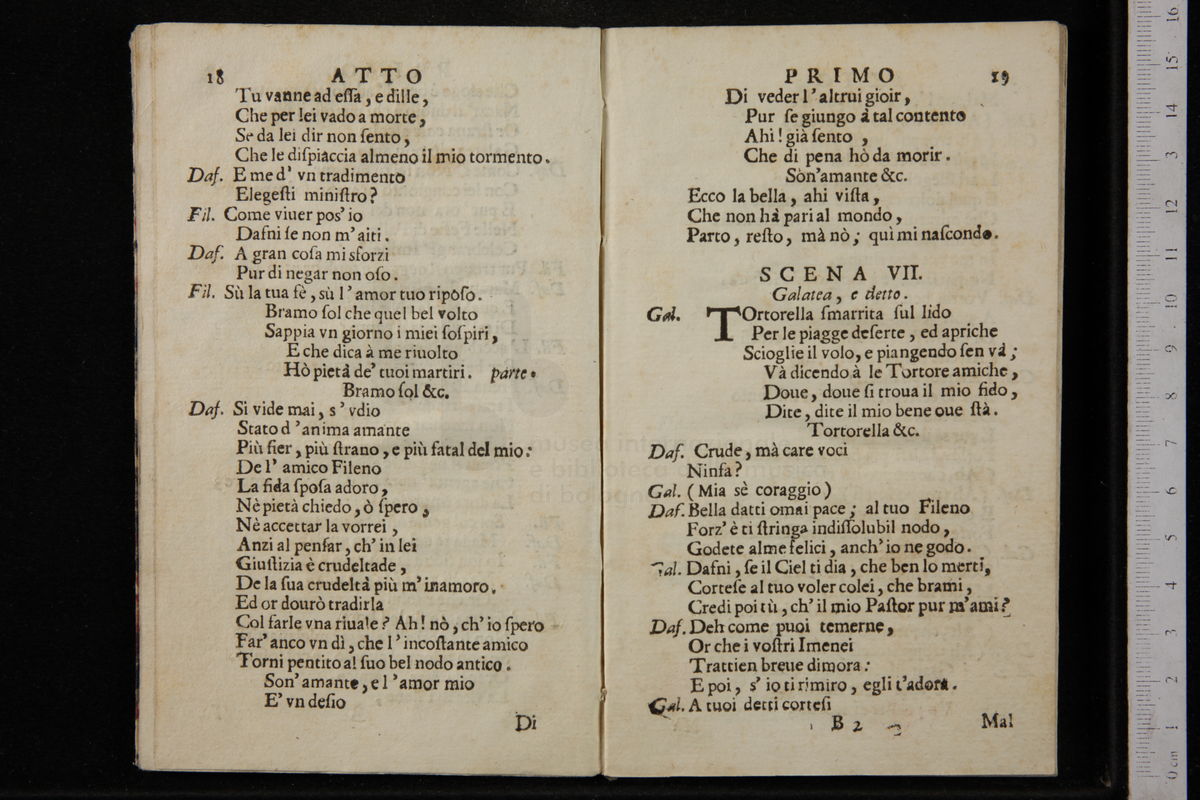 18 ATTO
Tu vanne ad eſſa, e dille,
Che per lei vado a morte,
Se da lei dir non ſento,
Che le diſpiaccia almeno il mio tormento.
Daf. E me d' vn tradimento
Elegeſti miniſtro?
Fil. Come viuer pos' io
Dafni ſe non m' aiti.
Daf. A gran coſa mi sforzi
Pur di negar non oſo.
Fil. Sù la tua fè, sù l' amor tuo ripòſo.
Bramo ſol che quel bel volto
Sappia vn giorno i miei ſoſpiri,
E che dica à me riuolto
Hò pietà de' tuoi martiri. parte.
Bramo ſol &c.
Daf. Si vide mai, s' vdio
Stato d' anima amante
Più fier, più ſtrano, e più fatal del mio:
De l' amico Fileno
La fida ſpoſa adoro,
Nè pietà chiedo, ò ſpero,
Nè accettar la vorrei,
Anzi al penſar, ch' in lei
Giuſtizia è crudeltade,
De la ſua crudeltà più m' inamoro.
Ed or dourò tradirla
Col farle vna riuale? Ah! nò, ch' io ſpero
Far' anco vn dì, che l' incoſtante amico
Torni pentito al ſuo bel nodo antico.
Son' amante, e l' amor mio
E' vn deſio
Di
PRIMO 19
Di veder l' altrui gioir,
Pur ſe giungo à tal contento
Ahi! già ſento,
Che di pena hò da morir.
Sòn' amante &c.
Ecco la bella, ahi viſta,
Che non hà pari al mondo,
Parto, reſto, mà nò; quì mi naſcondo.
SCENA VII.
Galatea, e detto.
Gal. TOrtorella ſmarrita ſul lido
Per le piagge deſerte, ed apriche
Scioglie il volo, e piangendo ſen và;
Và dicendo à le Tortore amiche,
Doue, doue ſi troua il mio fido,
Dite, dite il mio bene oue ſtà.
Tortorella &c.
Daf. Crude, mà care voci
Ninfa?
Gal. (Mia sè coraggio)
Daf. Bella datti omai pace; al tuo Fileno
Forz' è ti ſtringa indiſſolubil nodo,
Godete alme felici, anch' io ne godo.
Gal. Dafni, ſe il Ciel ti dia, che ben lo merti,
Corteſe al tuo voler colei, che brami,
Credi poi tù, ch' il mio Paſtor pur m' ami?
Daf. Deh come puoi temerne,
Or che i voſtri Imenei
Trattien breue dimora:
E poi, s' io ti rimiro, egli t' adora.
Gal. A tuoi detti corteſi
B 2
Mal